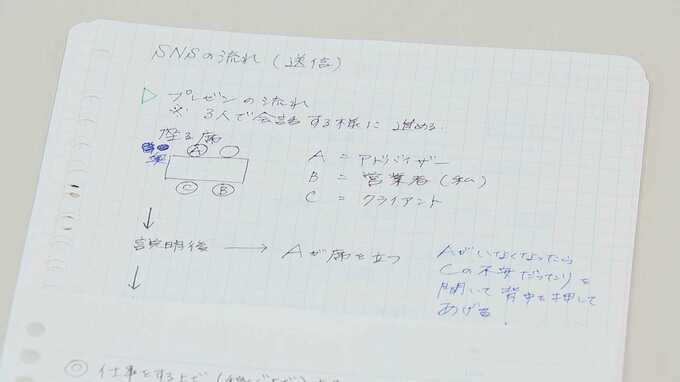 SNSの流れ (送信)
▷ プレゼンの流れ
※ 3人で会話する様に進める
座る席
A
C B
A = アドバイザー
B = 営業者 (私)
C = クライアント
↓
説明後 → Aが席を立つ
↓
Aがいなくなったら
Cの不安だったりを
聞いて背中を押して
あげる。
◎ 仕事をする上で